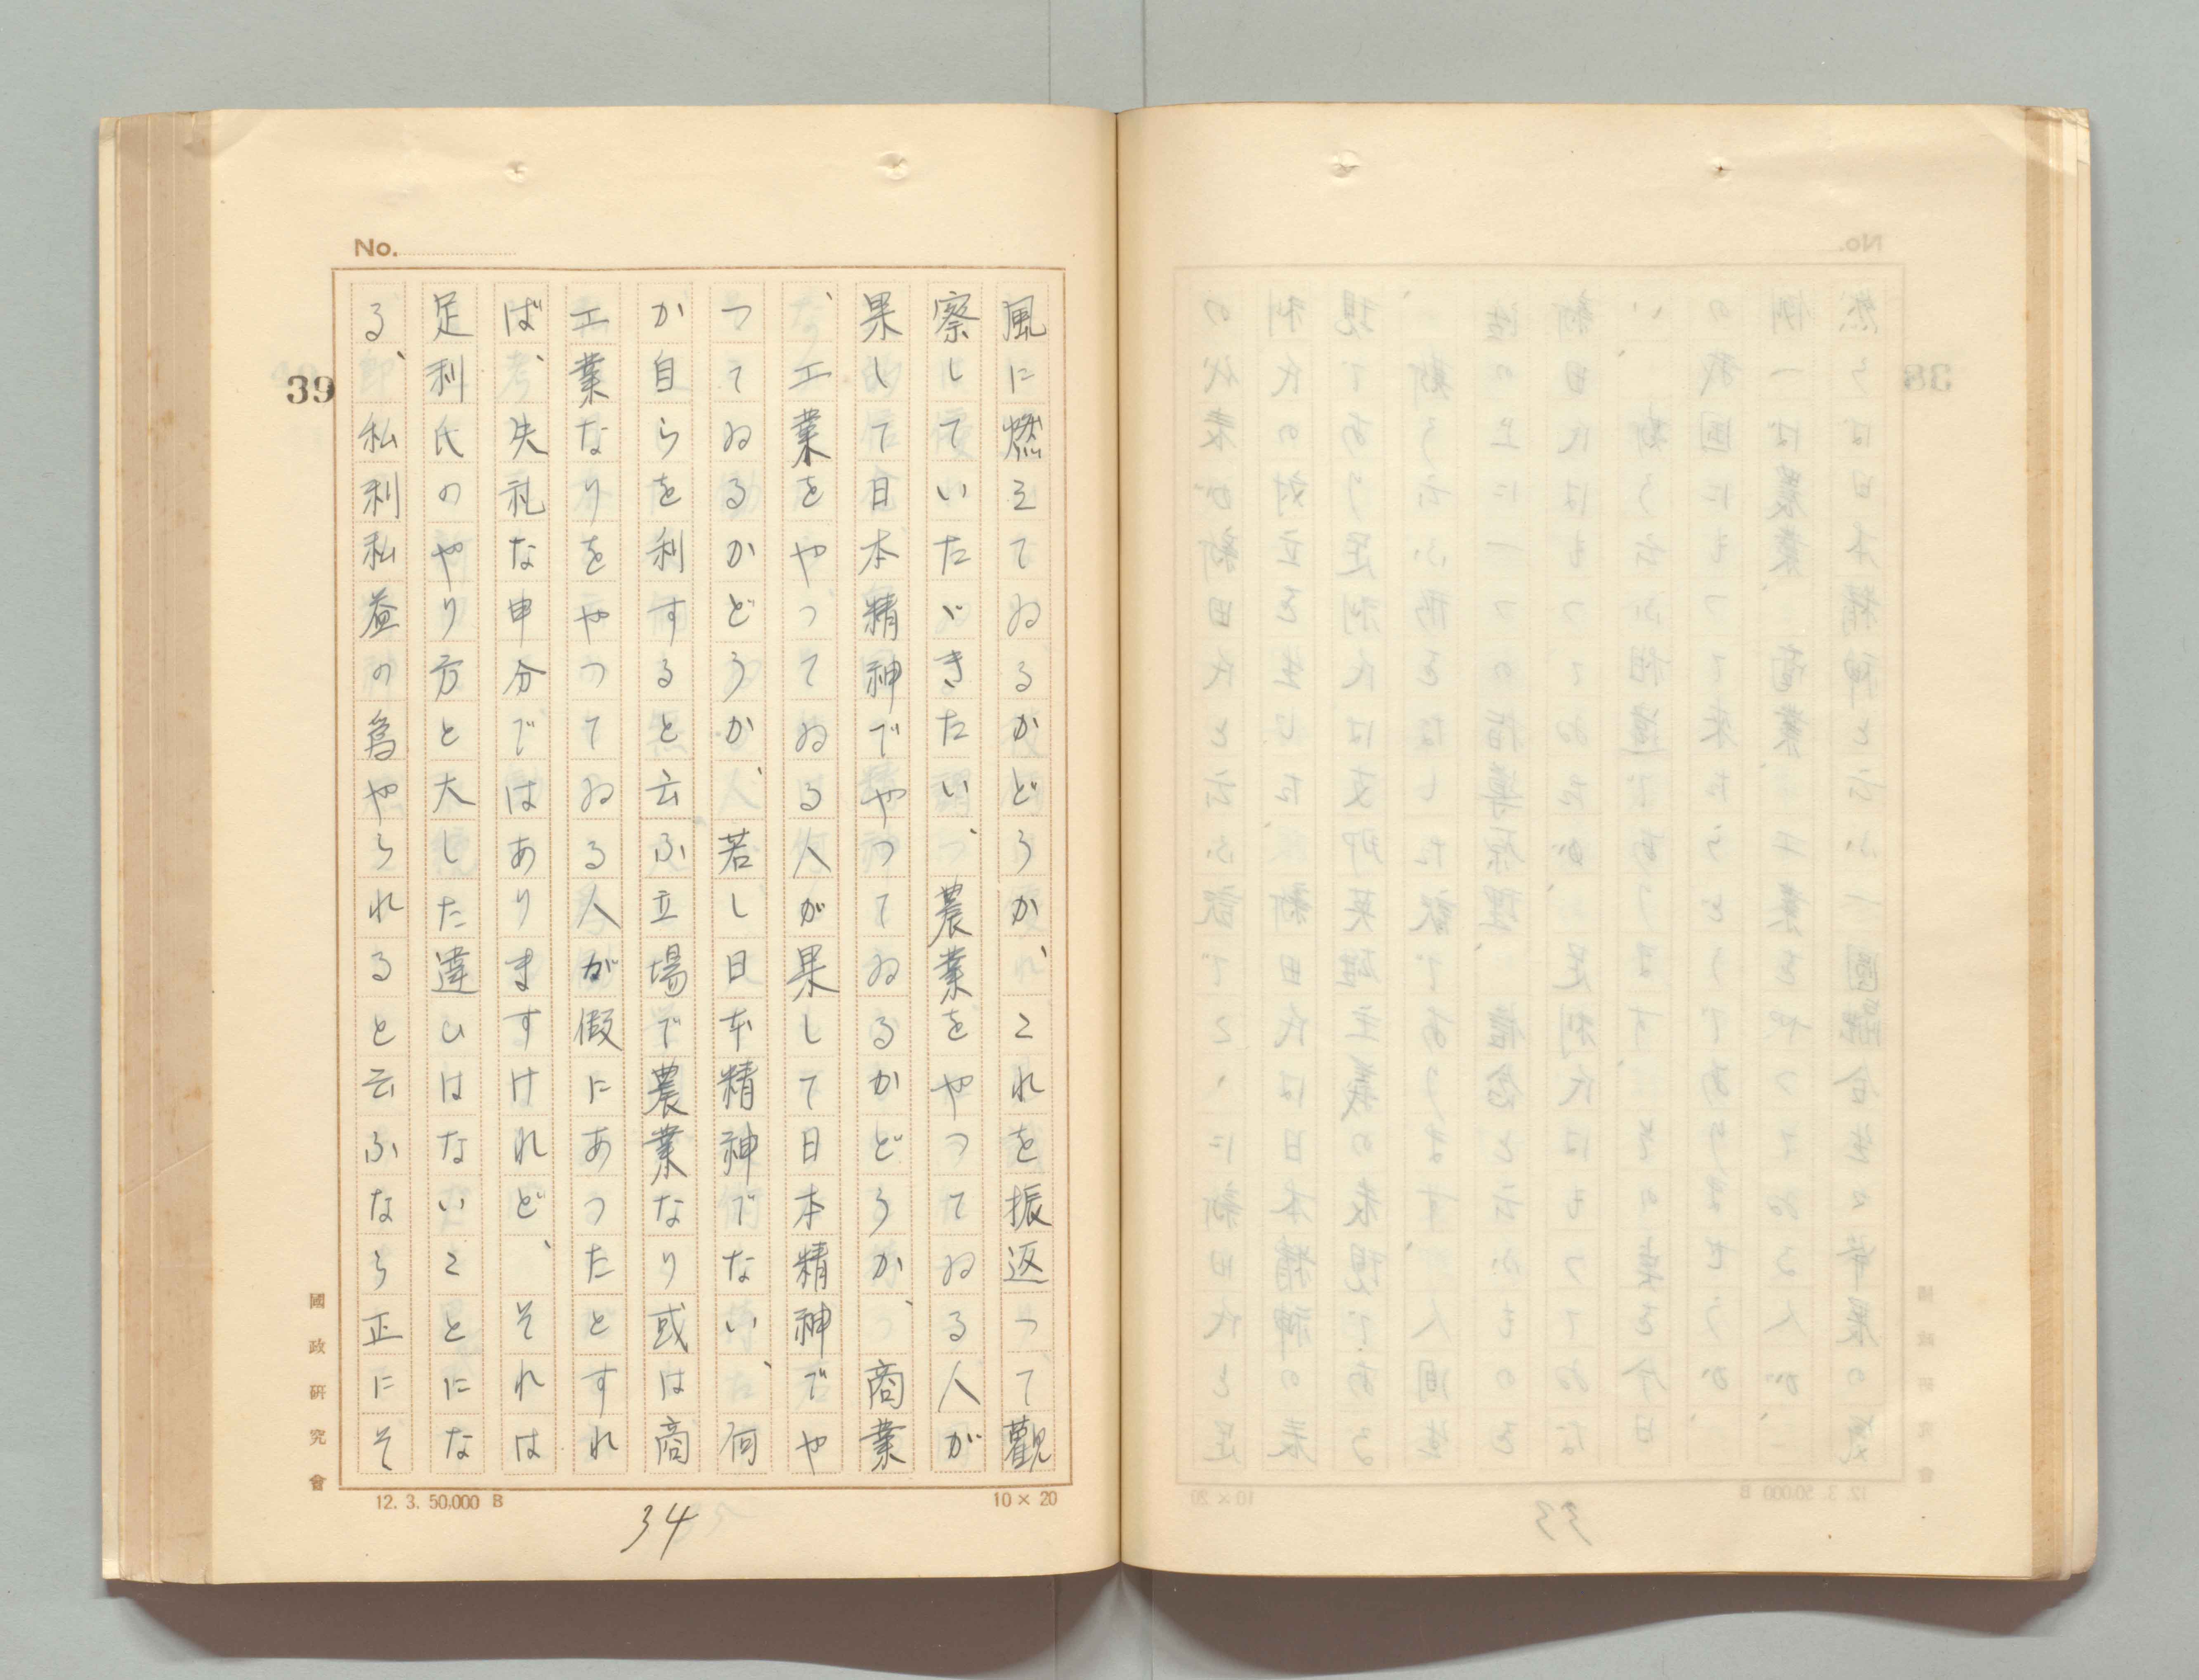 No.
39
風に燃えてゐるかどうか、これを振返つて觀
察していたゞきたい、農業をやつてゐる人が
果して日本精神でやつてゐるかどうか、商業
、工業をやつてゐる人が果して日本精神でや
つてゐるかどうか、若し日本精神でない、何
か自らを利すると云ふ立場で農業なり或は商
工業なりをやつてゐる人が假にあつたとすれ
ば、失礼な申分ではありますけれど、それは
足利氏のやり方と大した違ひはないことにな
る、私利私益の為やられると云ふなら正にそ
國政研究會
12. 3. 50,000 B
10×20
34